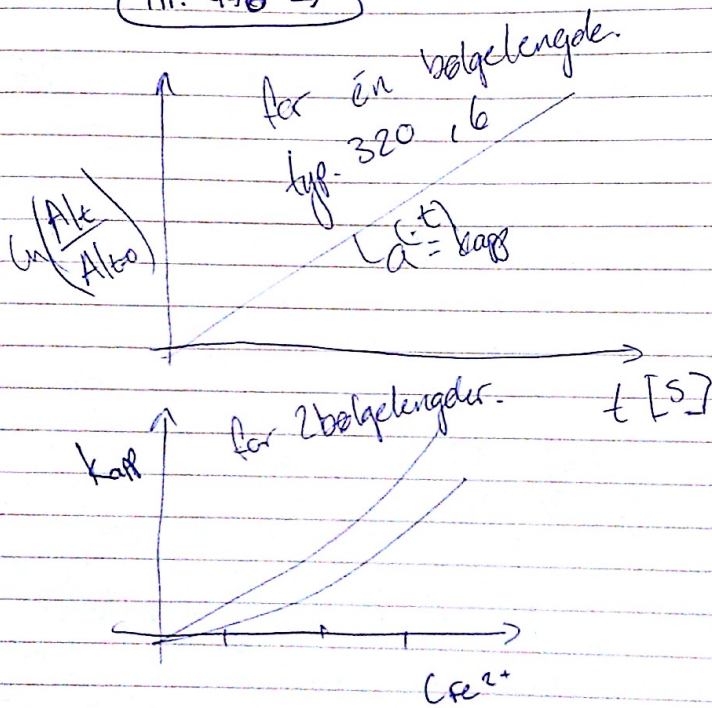 for én bølgelengde.
typ. 320 , 6
ln(A|t / A|t=0)
a(·t) = kapp
t [s]
for 2 bølgelengder.
kapp
CFe²⁺